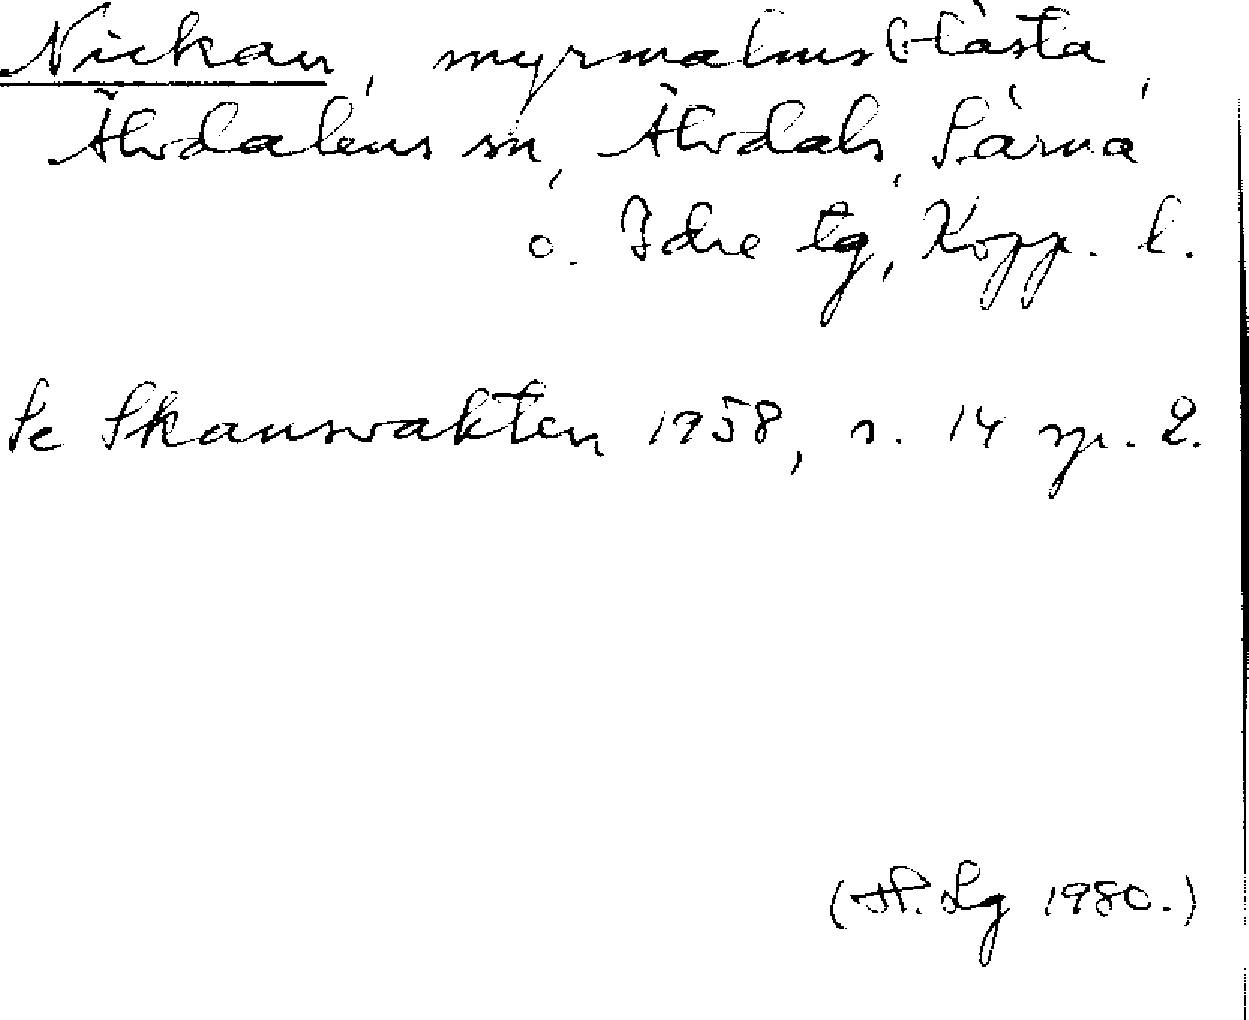 Nickan, myrmalmsblästa,
Älvdalens sn, Älvdals, Särna
o. Idre tg, Kopp. l.
Se Skansvakten 1958, s. 14 sp. 2.
(H. Lg 1980.)